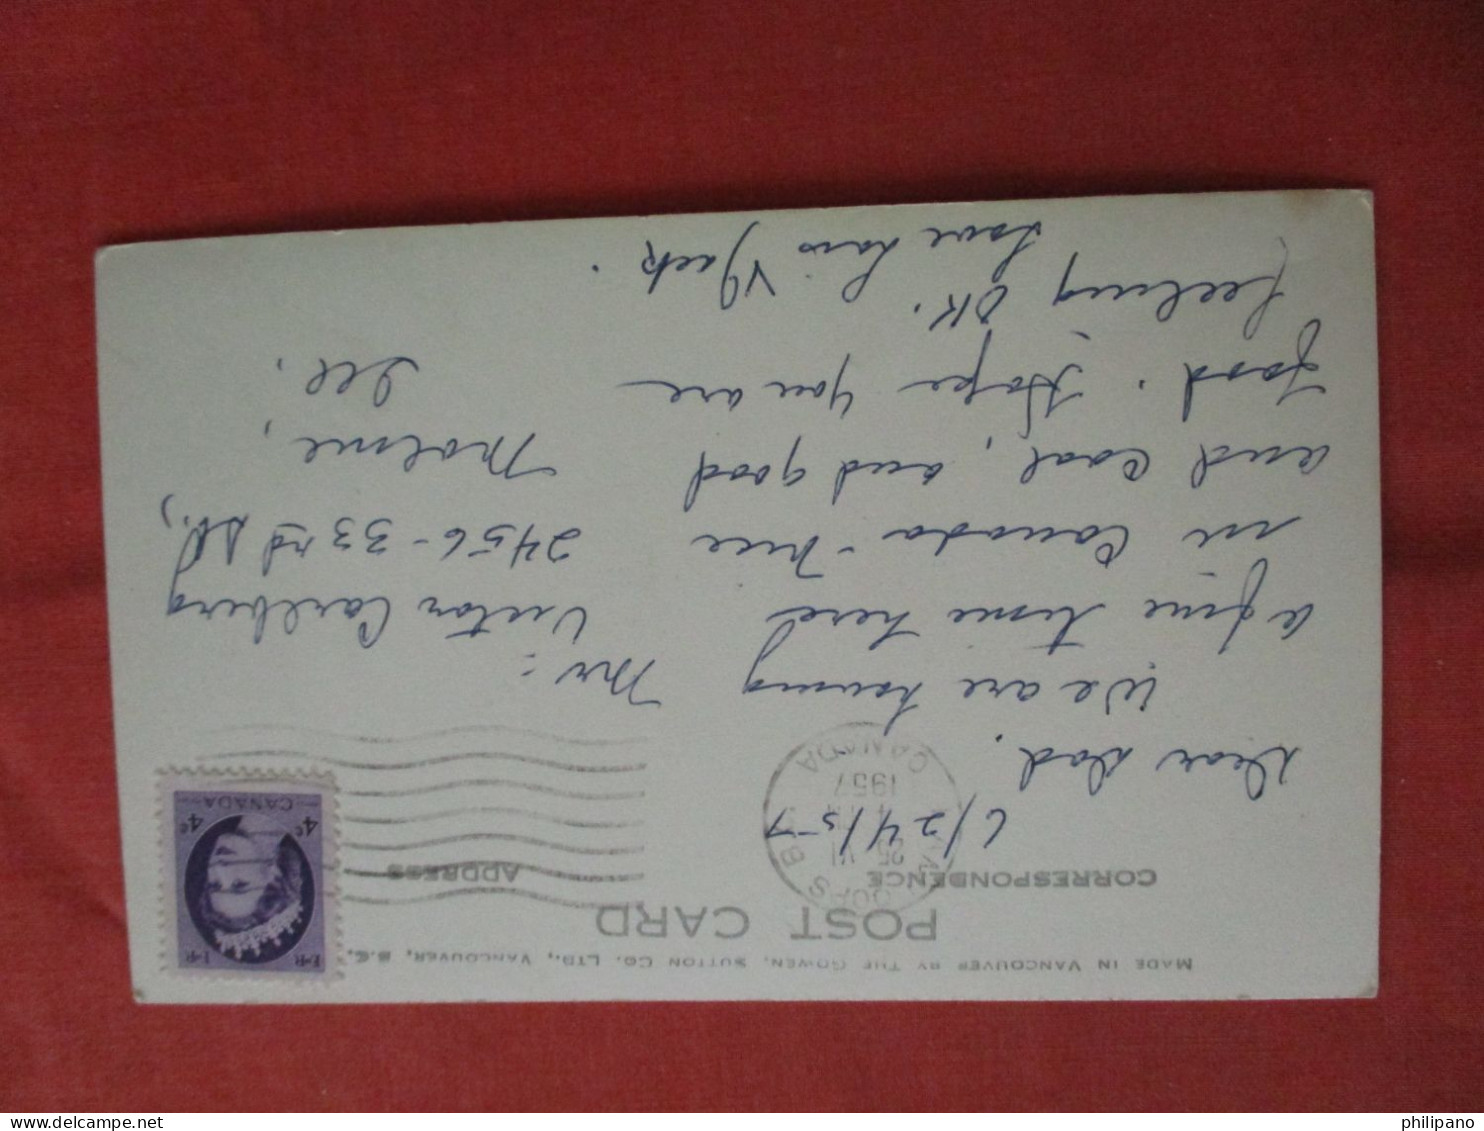 MADE IN VANCOUVER BY THE GOWEN, SUTTON CO. LTD., VANCOUVER, B.C.
POST CARD
CORRESPONDENCE
ADDRESS
E II R E II R
4c 4c
CANADA
OOPS B
25 VI
1957
CANADA
6/24/57
Dear Dad.
We are having
a fine time here
in Canada - nice
and cool, and good
food. Hope you are
feeling OK.
Love Lois & Jack.
Mr:
Victor Carlberg
2456 - 33rd St.,
Moline,
Ill.
philipano